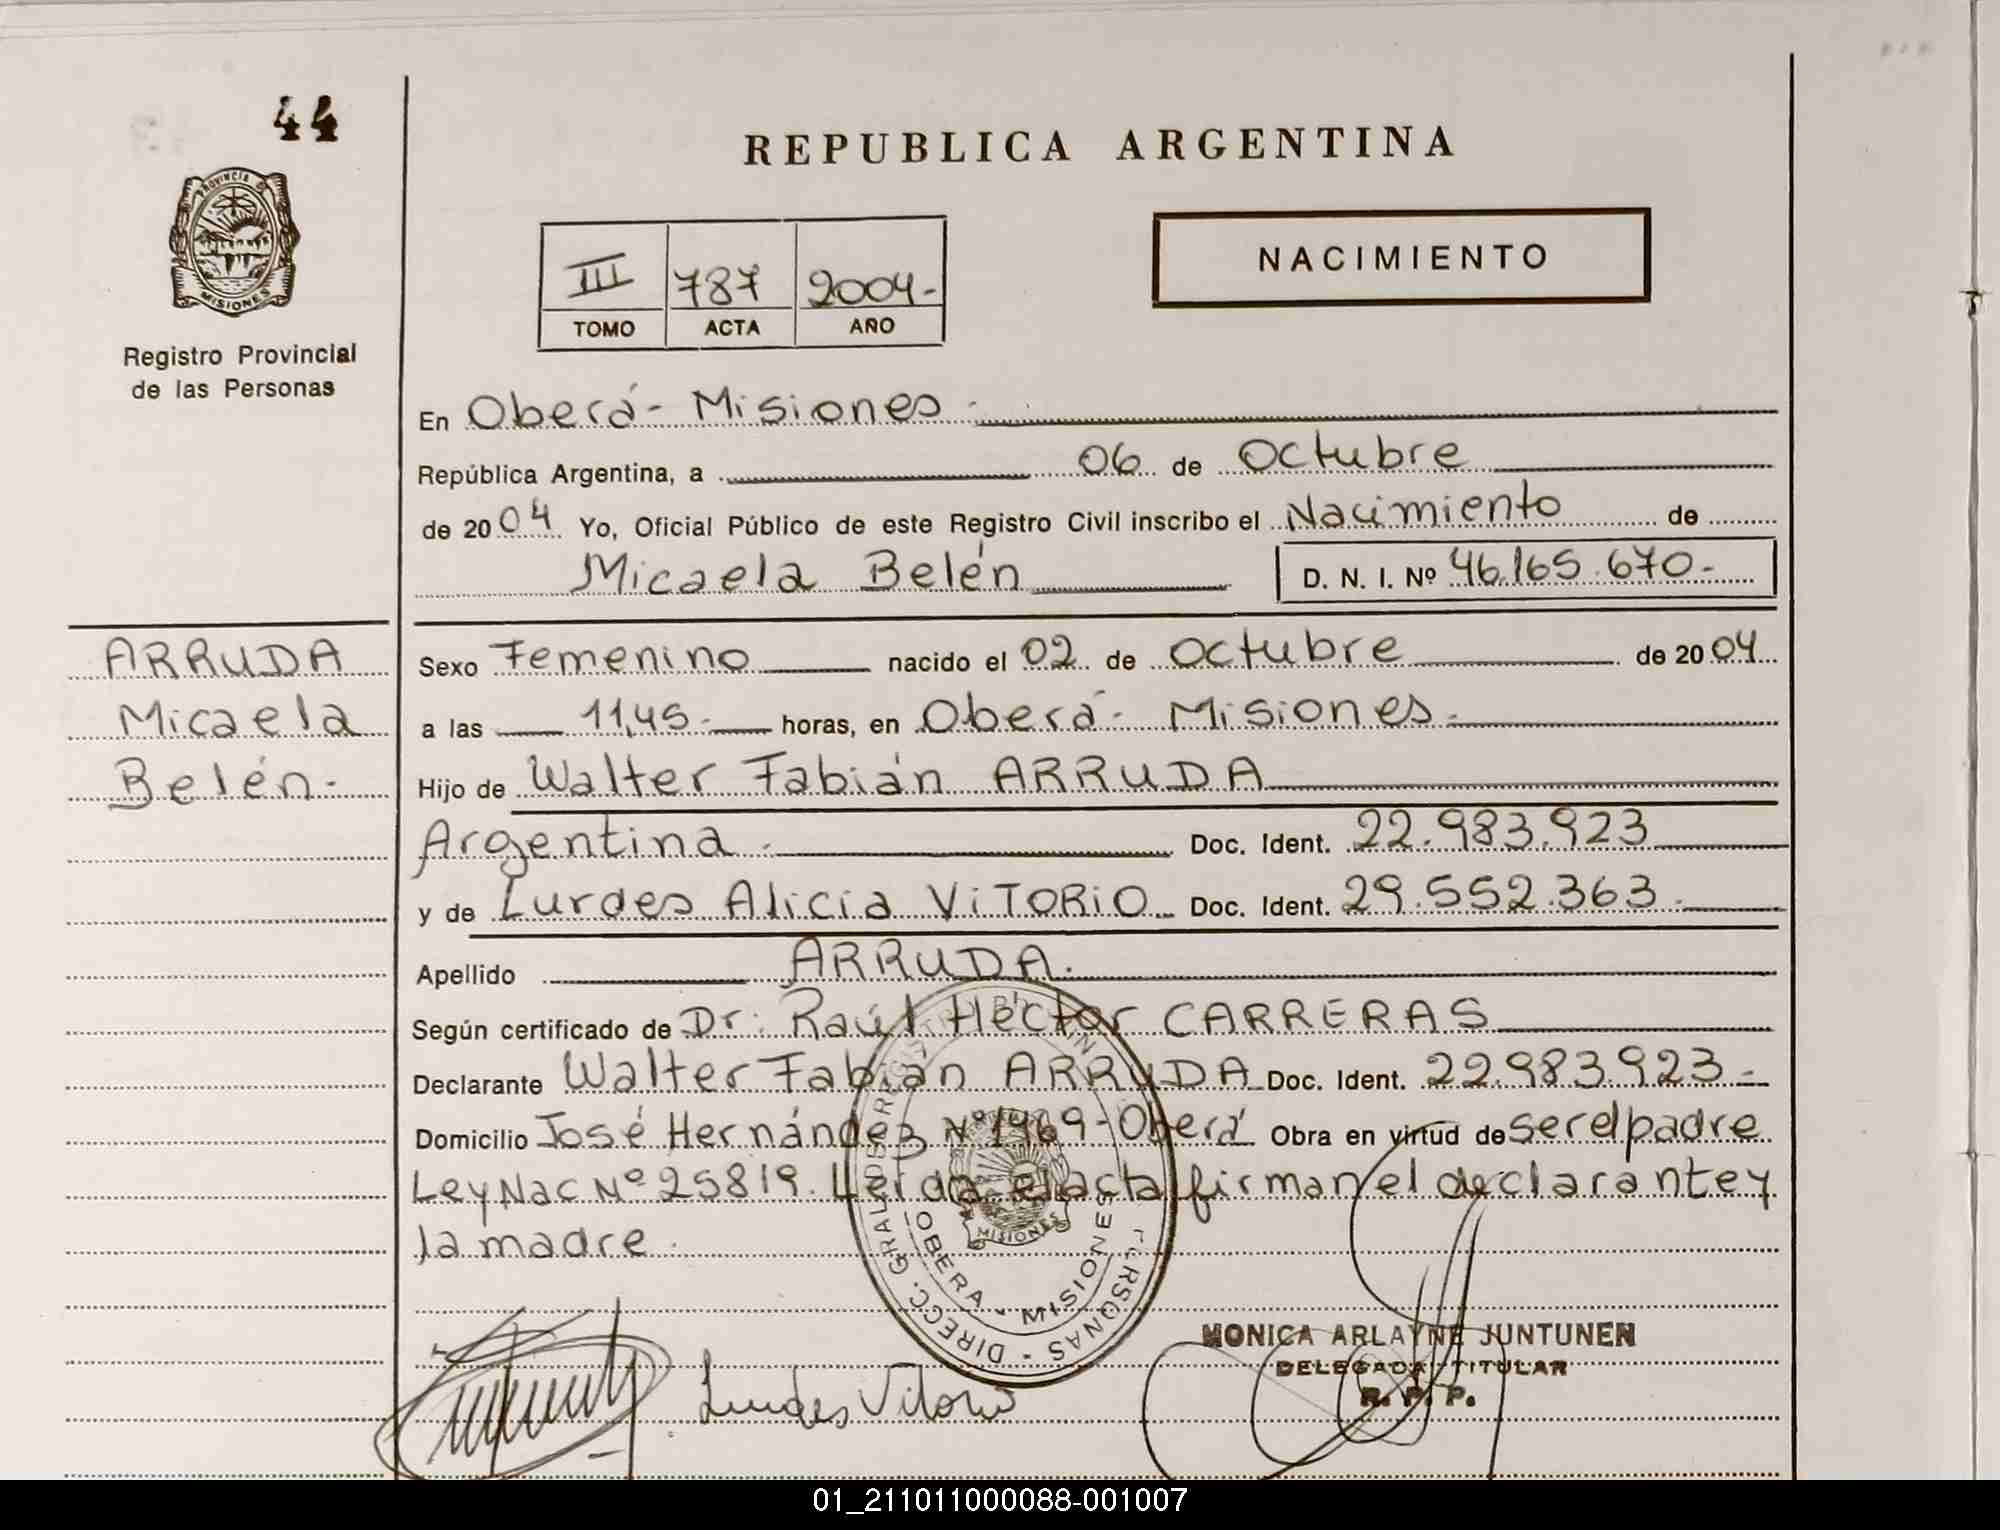 44
PROVINCIA DE
MISIONES
Registro Provincial
de las Personas
REPUBLICA ARGENTINA
III 787 2004-
TOMO ACTA AÑO
NACIMIENTO
En Oberá- Misiones-
República Argentina, a 06 de Octubre
de 2004 Yo, Oficial Público de este Registro Civil inscribo el Nacimiento de
Micaela Belén D. N. I. Nº 46.165.670-
ARRUDA
Micaela
Belén-
Sexo Femenino nacido el 02 de Octubre de 2004
a las 11,45- horas, en Oberá- Misiones-
Hijo de Walter Fabián ARRUDA
Argentina- Doc. Ident. 22.983.923
y de Lurdes Alicia ViTORiO Doc. Ident. 29.552.363-
Apellido ARRUDA.
Según certificado de Dr: Raúl Héctor CARRERAS
Declarante Walter Fabián ARRUDA Doc. Ident. 22.983.923-
Domicilio José Hernández Nº 1469-Oberá Obra en virtud de ser el padre
Ley Nac Nº 25819. Leída el acta firman el declarante y
la madre.
OBERA - MISIONES
MISIONES
PERSONAS - DIRECC. GRAL. DE
Lurdes Vitorio
MONICA ARLAYNE JUNTUNEN
DELEGADA TITULAR
R. P. P.
01_211011000088-001007